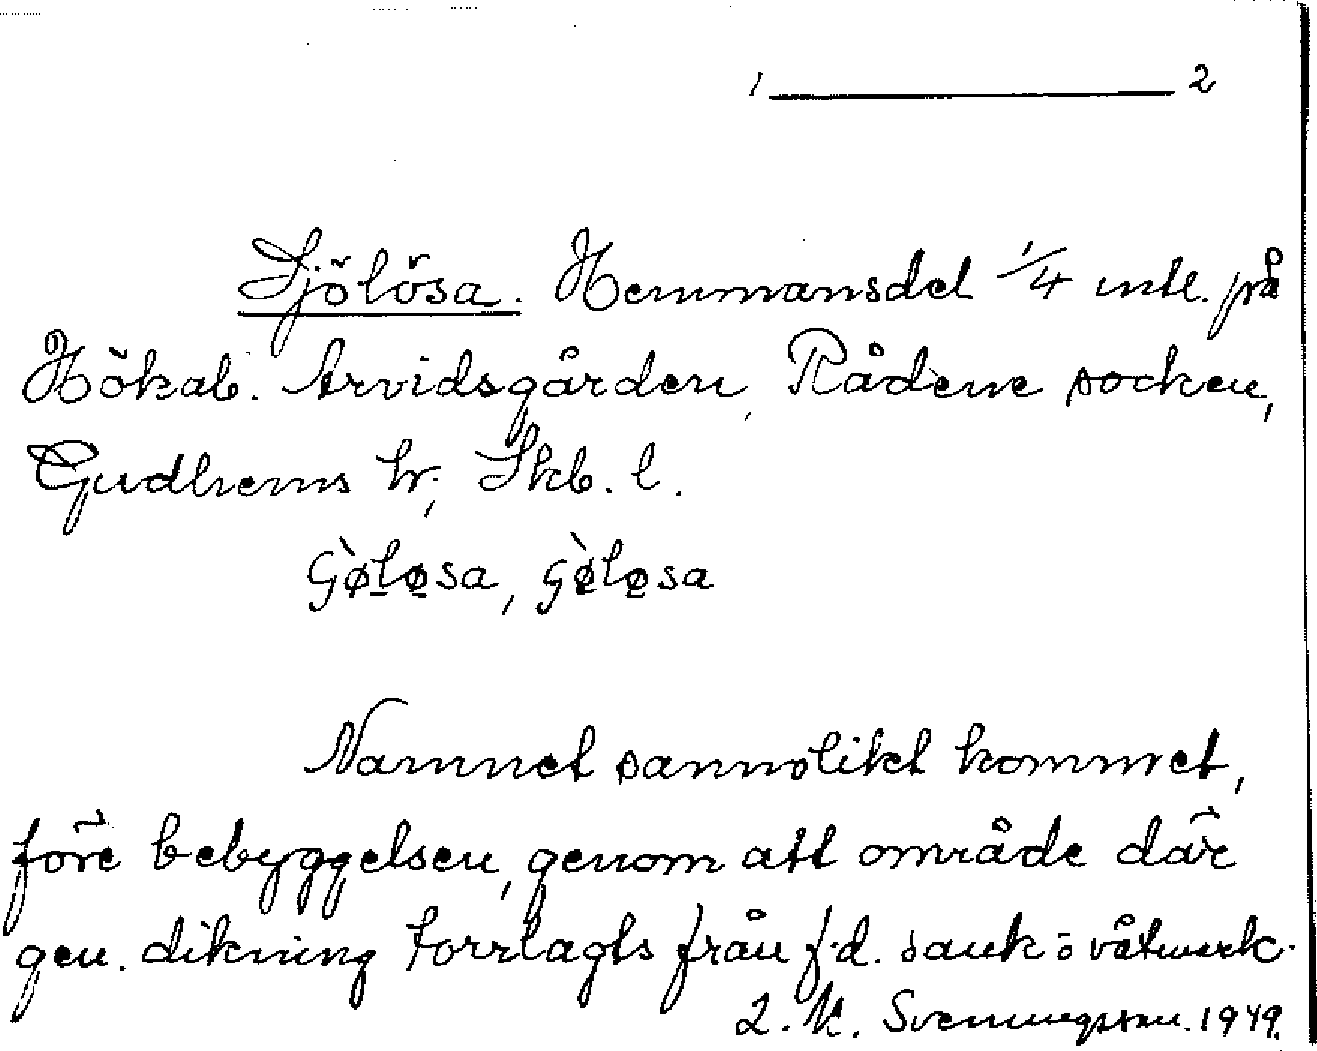 1 ————— 2
Sjölösa. Hemmansdel 1/4 mtl. på
Hökab. Arvidsgården, Rådene socken,
Gudhems hr; Skb. l.
Namnet sannolikt kommet,
före bebyggelsen, genom att område där
gen. dikning torrlagts från f.d. sank o våtmark.
L. M. Svenungsson. 1949.